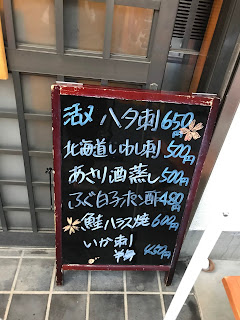 活〆 ハタ刺 650円
北海道いわし刺 500円
あさり酒蒸し 500円
ふぐ白子ポン酢 480円
鮭ハラス焼 600円
いか刺 450円